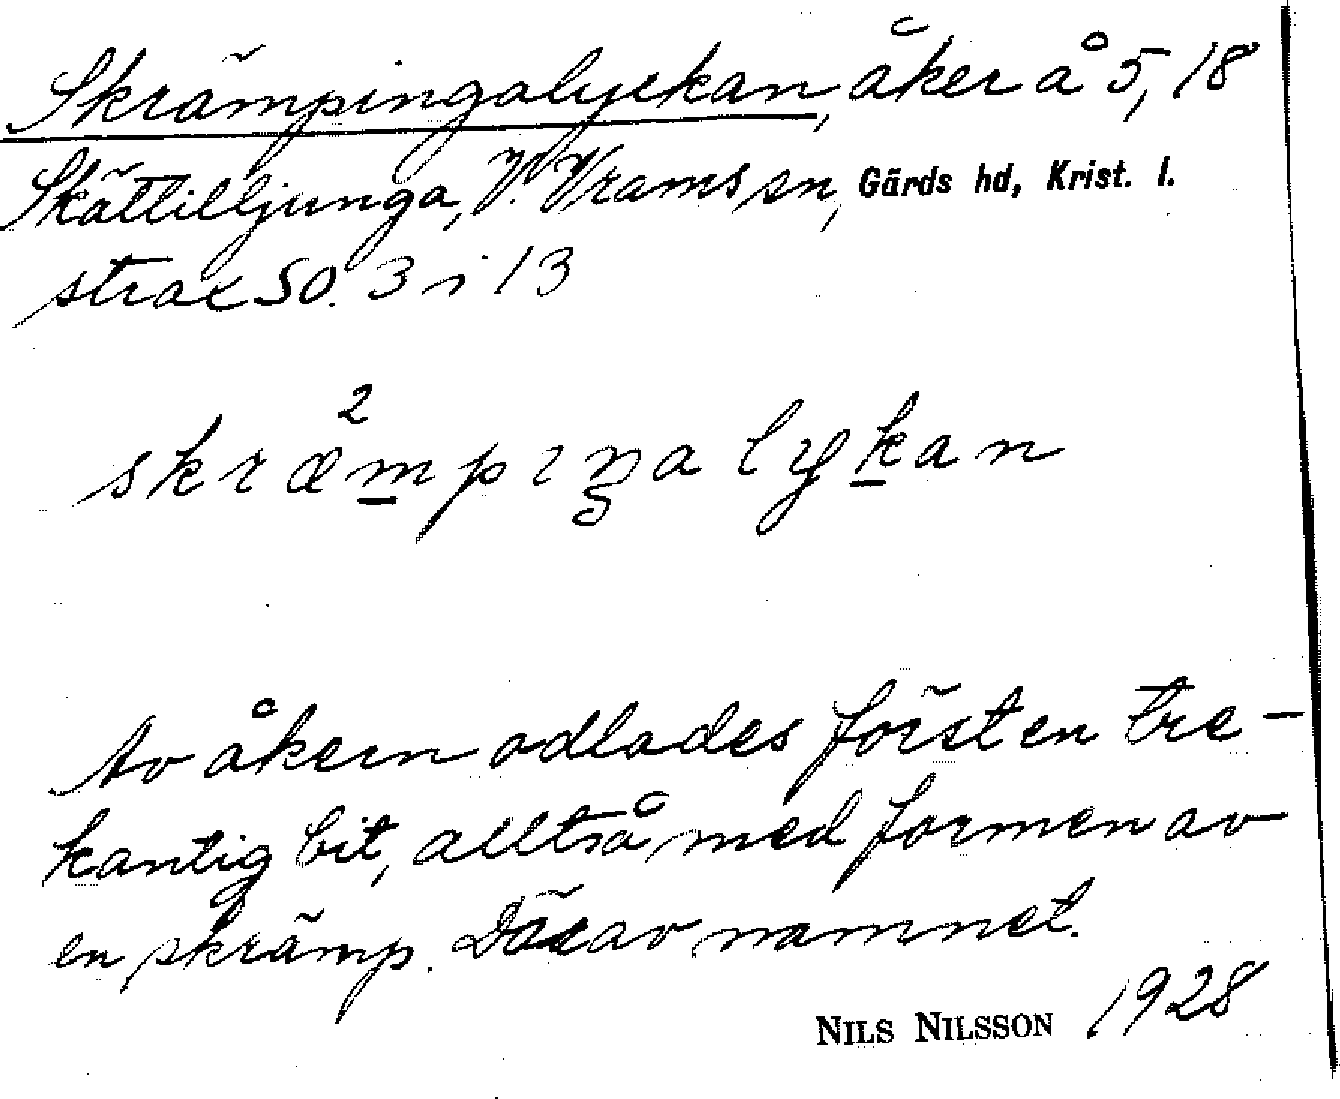 Skrämpingalyckan, åker å 5, 18
Skättilljunga, V. Vrams sn, Gärds hd, Krist. l.
strax SO. 3 i 13
2
skræmpıŋalykan
Av åkern odlades först en tre-
kantig bit, alltså med formen av
en skrämp. Därav namnet.
NILS NILSSON 1928